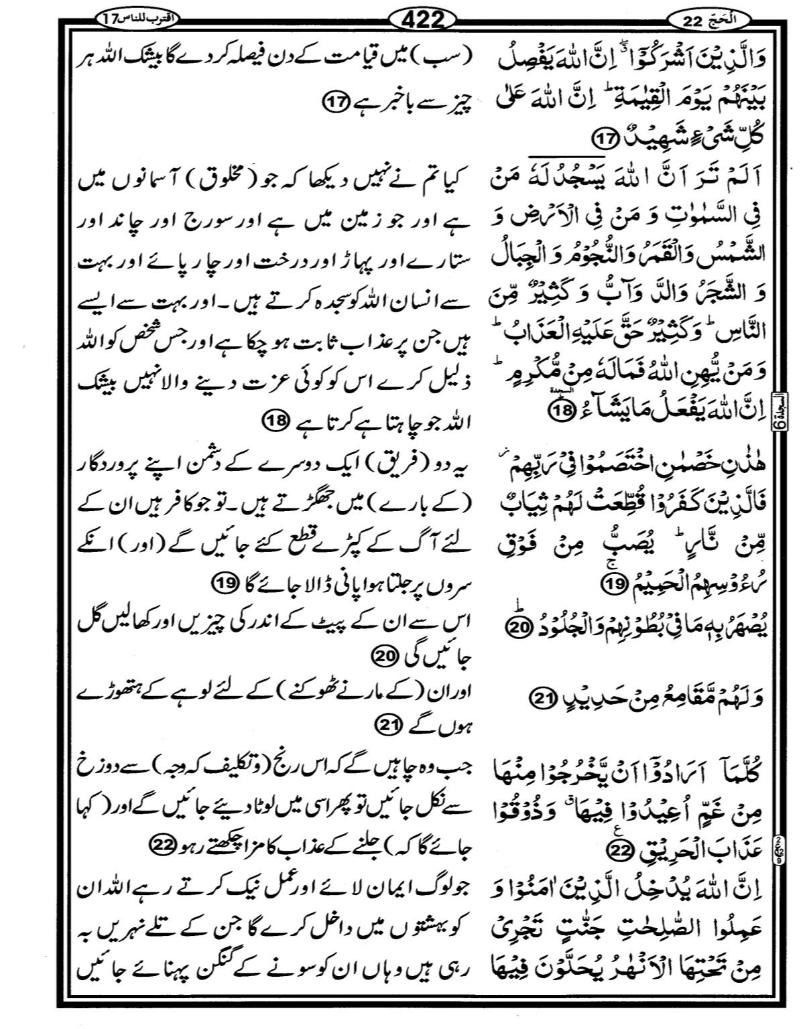 الْحَجّ 22
422
اقترب للناس 17
وَالَّذِيْنَ اَشْرَكُوْۤا ۖۗ اِنَّ اللّٰهَ يَفْصِلُ
بَيْنَهُمْ يَوْمَ الْقِيٰمَةِ ؕ اِنَّ اللّٰهَ عَلٰى
كُلِّ شَىْءٍ شَهِيْدٌ 17
اَلَمْ تَرَ اَنَّ اللّٰهَ يَسْجُدُ لَهٗ مَنْ
فِى السَّمٰوٰتِ وَ مَنْ فِى الْاَرْضِ وَ
الشَّمْسُ وَالْقَمَرُ وَالنُّجُوْمُ وَ الْجِبَالُ
وَ الشَّجَرُ وَالدَّ وَآبُّ وَ كَثِيْرٌ مِّنَ
النَّاسِ ؕ وَكَثِيْرٌ حَقَّ عَلَيْهِ الْعَذَابُ ؕ
وَ مَنْ يُّهِنِ اللّٰهُ فَمَا لَهٗ مِنْ مُّكْرِمٍ ؕ
اِنَّ اللّٰهَ يَفْعَلُ مَا يَشَآءُ 18
هٰذٰنِ خَصْمٰنِ اخْتَصَمُوْا فِىْ رَبِّهِمْ ز
فَالَّذِيْنَ كَفَرُوْا قُطِّعَتْ لَهُمْ ثِيَابٌ
مِّنْ نَّارٍ ؕ يُصَبُّ مِنْ فَوْقِ
رُءُوْسِهِمُ الْحَمِيْمُ ۚ 19
يُصْهَرُ بِهٖ مَا فِىْ بُطُوْنِهِمْ وَالْجُلُوْدُ ؕ 20
وَ لَهُمْ مَّقَامِعُ مِنْ حَدِيْدٍ 21
كُلَّمَاۤ اَرَادُوْۤا اَنْ يَّخْرُجُوْا مِنْهَا
مِنْ غَمٍّ اُعِيْدُوْا فِيْهَا ۗ وَ ذُوْقُوْا
عَذَابَ الْحَرِيْقِ 22
اِنَّ اللّٰهَ يُدْخِلُ الَّذِيْنَ اٰمَنُوْا وَ
عَمِلُوا الصّٰلِحٰتِ جَنّٰتٍ تَجْرِىْ
مِنْ تَحْتِهَا الْاَنْهٰرُ يُحَلَّوْنَ فِيْهَا
السجدة 6
(سب) میں قیامت کے دن فیصلہ کر دے گا بیشک اللہ ہر
چیز سے باخبر ہے 17
کیا تم نے نہیں دیکھا کہ جو (مخلوق) آسمانوں میں
ہے اور جو زمین میں ہے اور سورج اور چاند اور
ستارے اور پہاڑ اور درخت اور چارپائے اور بہت
سے انسان اللہ کو سجدہ کرتے ہیں۔ اور بہت سے ایسے
ہیں جن پر عذاب ثابت ہو چکا ہے اور جس شخص کو اللہ
ذلیل کرے اس کو کوئی عزت دینے والا نہیں بیشک
اللہ جو چاہتا ہے کرتا ہے 18
یہ دو (فریق) ایک دوسرے کے دشمن اپنے پروردگار
(کے بارے) میں جھگڑتے ہیں۔ تو جو کافر ہیں ان کے
لئے آگ کے کپڑے قطع کئے جائیں گے (اور) انکے
سروں پر جلتا ہوا پانی ڈالا جائے گا 19
اس سے ان کے پیٹ کے اندر کی چیزیں اور کھالیں گل
جائیں گی 20
اور ان (کے مارنے ٹھوکنے) کے لئے لوہے کے ہتھوڑے
ہوں گے 21
جب وہ چاہیں گے کہ اس رنج (و تکلیف کہ وجہ) سے دوزخ
سے نکل جائیں تو پھر اسی میں لوٹا دیئے جائیں گے اور (کہا
جائے گا کہ) جلنے کے عذاب کا مزا چکھتے رہو 22
جو لوگ ایمان لائے اور عمل نیک کرتے رہے اللہ ان
کو بہشتوں میں داخل کرے گا جن کے تلے نہریں بہ
رہی ہیں وہاں ان کو سونے کے کنگن پہنائے جائیں